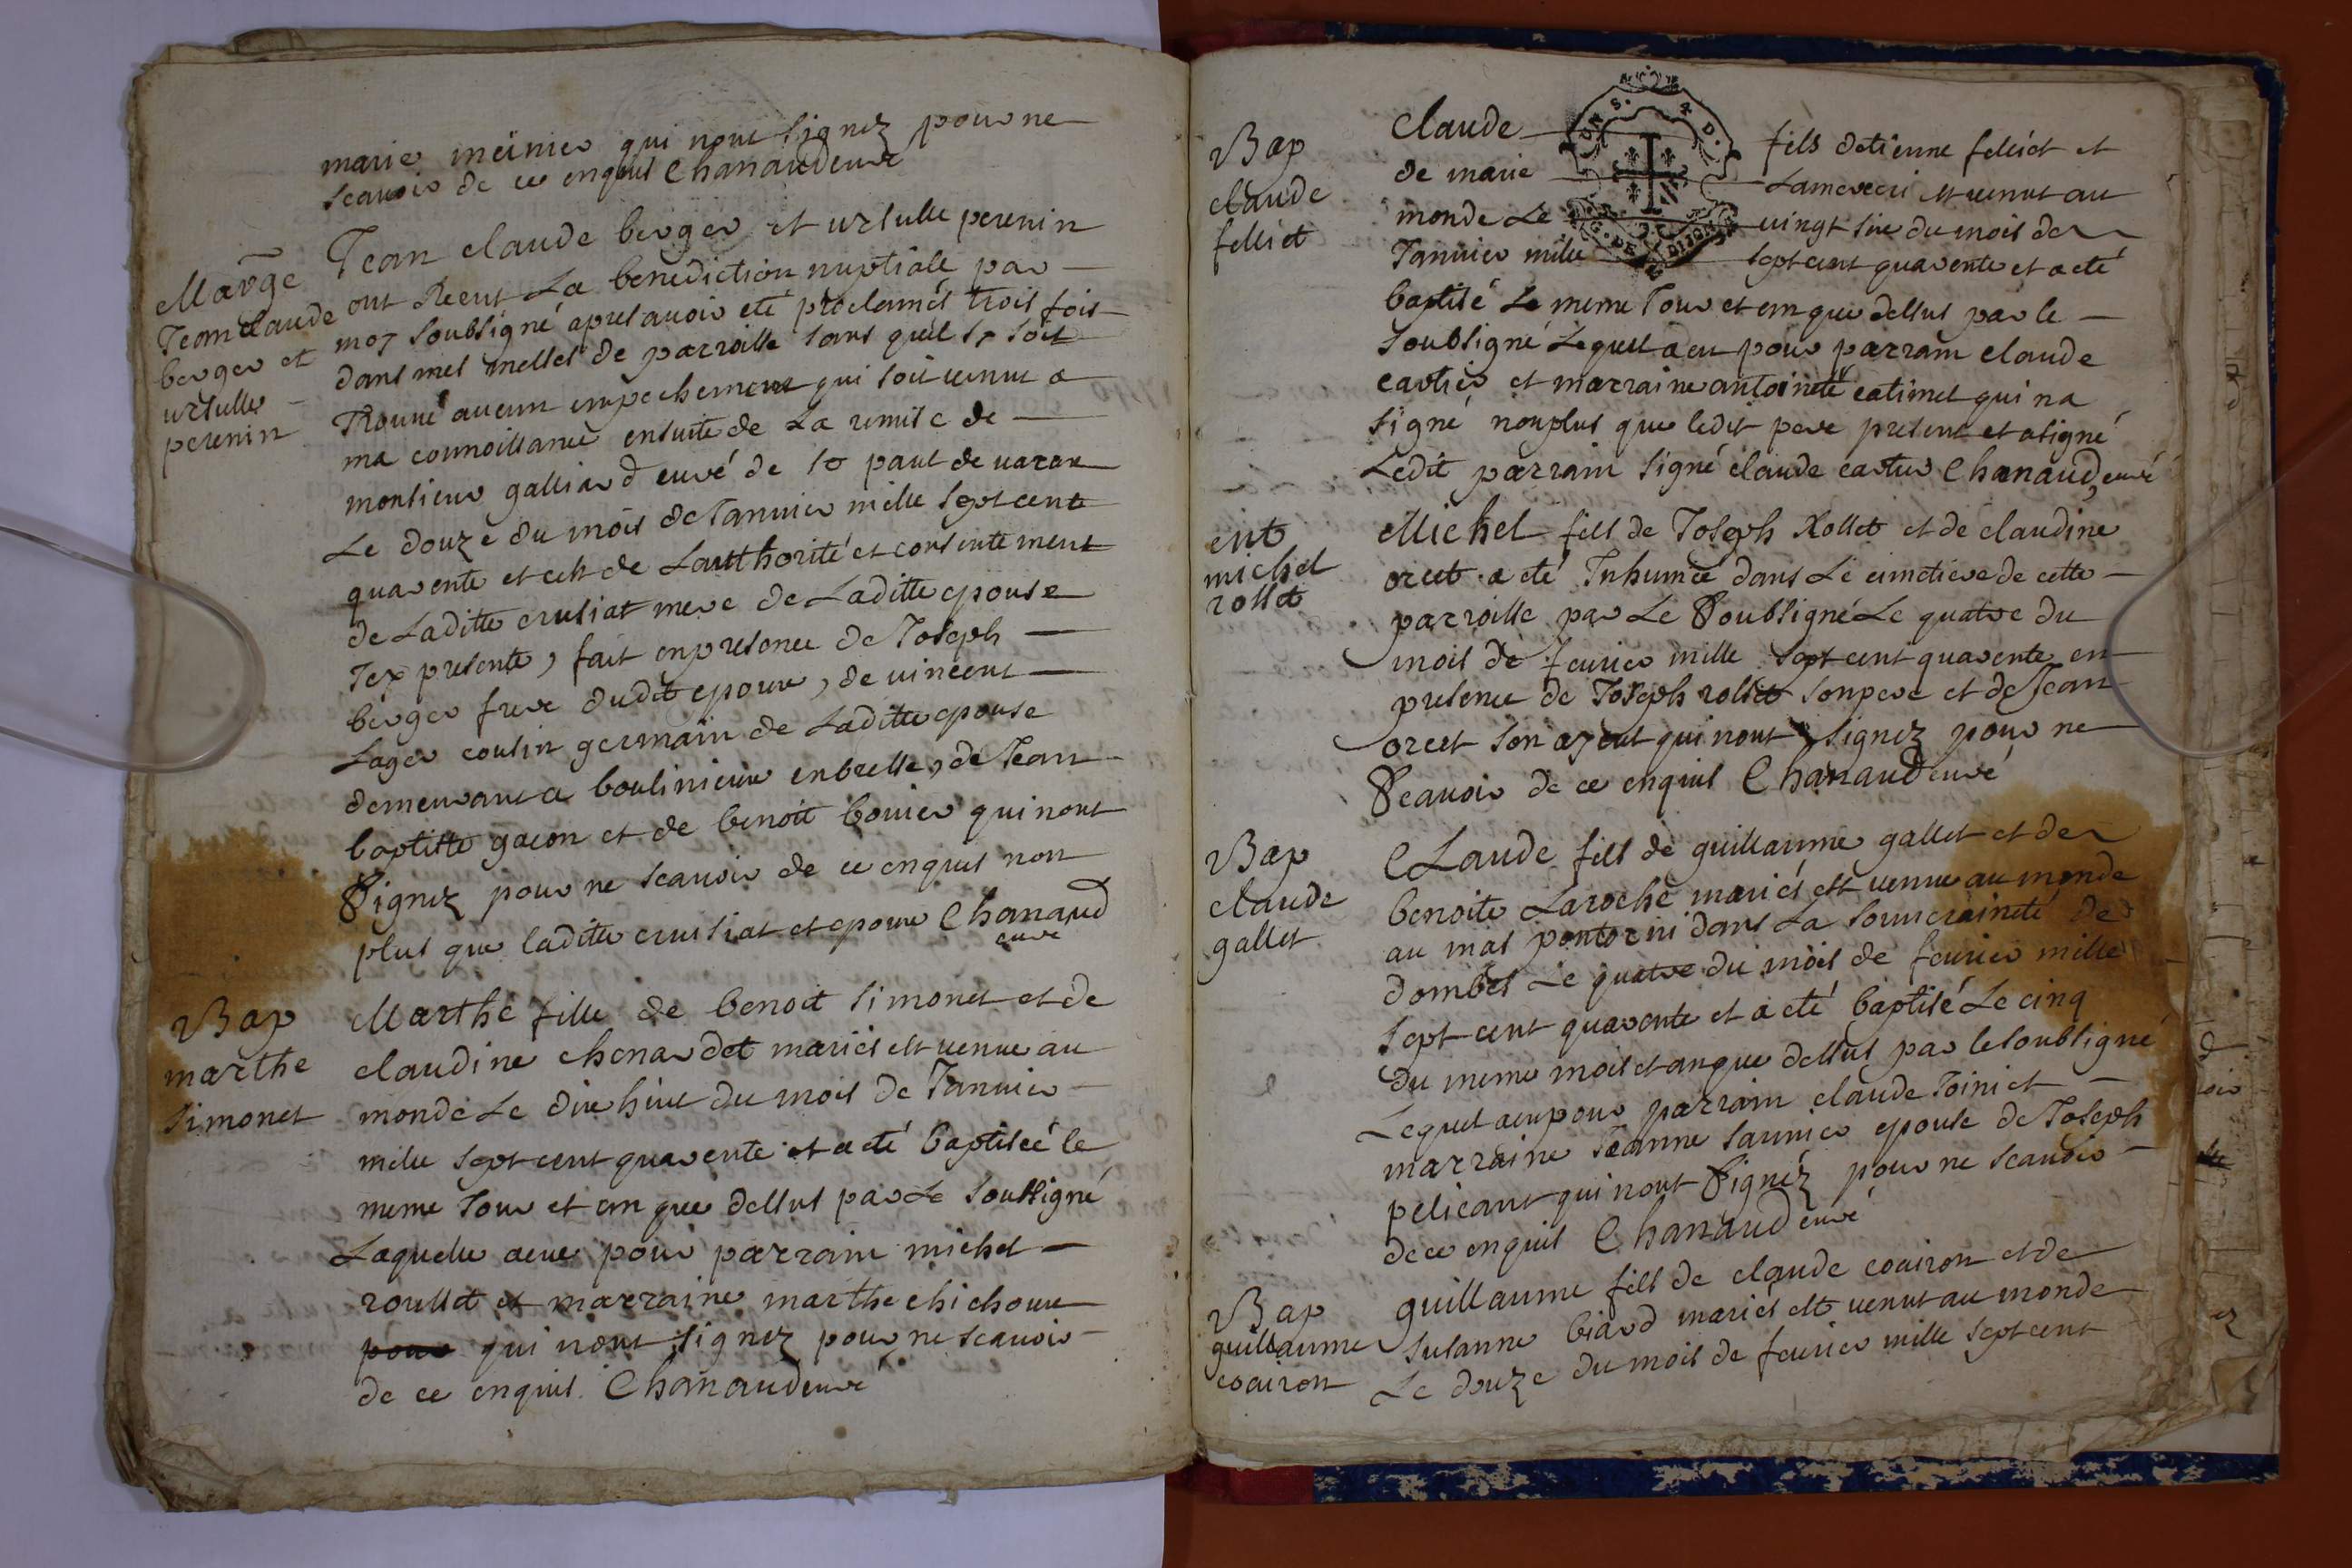 marie meinier qui nont signez pour ne
scauoir de ce enquis Chanaud curé
Marge
Jean claude
berger et
ursulle
perenin
Jean claude berger et ursulle perenin
ont Receut La benediction nuptiale par
moy soubsigné apres auoir eté proclamés trois fois
dans mes messes de parroisse sans quil sy soit
Trouué aucun empechement qui soit uenut a
ma connoissance ensuite de La remise de
monsieur galliard curé de st paul de uarax
Le douze du mois de Januier mille sept cents
quarente et cest de Lauthorité et consentement
de Laditte crusiat mere de Laditte epouse
Jcy presente, fait en presence de Joseph
berger frere dudit epoux, de uincent
Lager cousin germain de Laditte epouse
demeurant a boulinieux en bresse, de Jean
baptiste gacon et de benoit bouier qui nont
Signez pour ne scauoir de ce enquis non
plus que laditte crusiat et epoux Chanaud
curé
Bap
marthe
simonet
Marthe fille de benoit simonet et de
claudine chenardet mariés est uenue au
monde Le dix huit du mois de Januier
mille sept cent quarente et a eté baptiseé le
meme Jour et an que dessus par Le soubsigné
Laquelle a eue pour parrain michel
roullet et marraine marthe chichoux
pour qui nont signez pour ne scauoir
de ce enquis Chanaud curé
Bap
claude
felliet
GEN. DE DIJON
Claude fils detienne felliet et
de marie Lamerecri est uenut au
monde Le uingt six du mois de
Januier mille sept cent quarente et a eté
baptisé Le meme Jour et an que dessus par le
soubsigné Lequel a eu pour parrain claude
cartier et marraine antoinette catimel qui na
signé non plus que ledit pere present et a signé
Ledit parrain signé claude cartier Chanaud, curé
ent
michel
rollet
Michel fils de Joseph Rollet et de claudine
orcet a eté Jnhumée dans Le cimetiere de cette
parroisse par Le Soubsigné Le quatre du
mois de feurier mille sept cent quarente en
presence de Joseph rollet son pere et de Jean
orcet son ayeul qui nont signez pour ne
Scauoir de ce enquis Chanaud curé
Bap
claude
gallet
CLaude fils de guillaume gallet et de
benoite Laroche mariés est uenu au monde
au mas pontorini dans La souueraineté de
dombes Le quatre du mois de feurier mille
sept cent quarente et a eté baptisé Le cinq
du meme mois et an que dessus par le soubsigné
Lequel a eu pour parrain claude Toiniet
marraine Jeanne saunier epouse de Joseph
pelicant qui nont Signéz pour ne scauoir
de ce enquis Chanaud curé
Bap
guillaume
coairon
guillaume fils de claude coairon et de
susanne biard mariés est uenut au monde
Le douze du mois de feurier mille sept cent